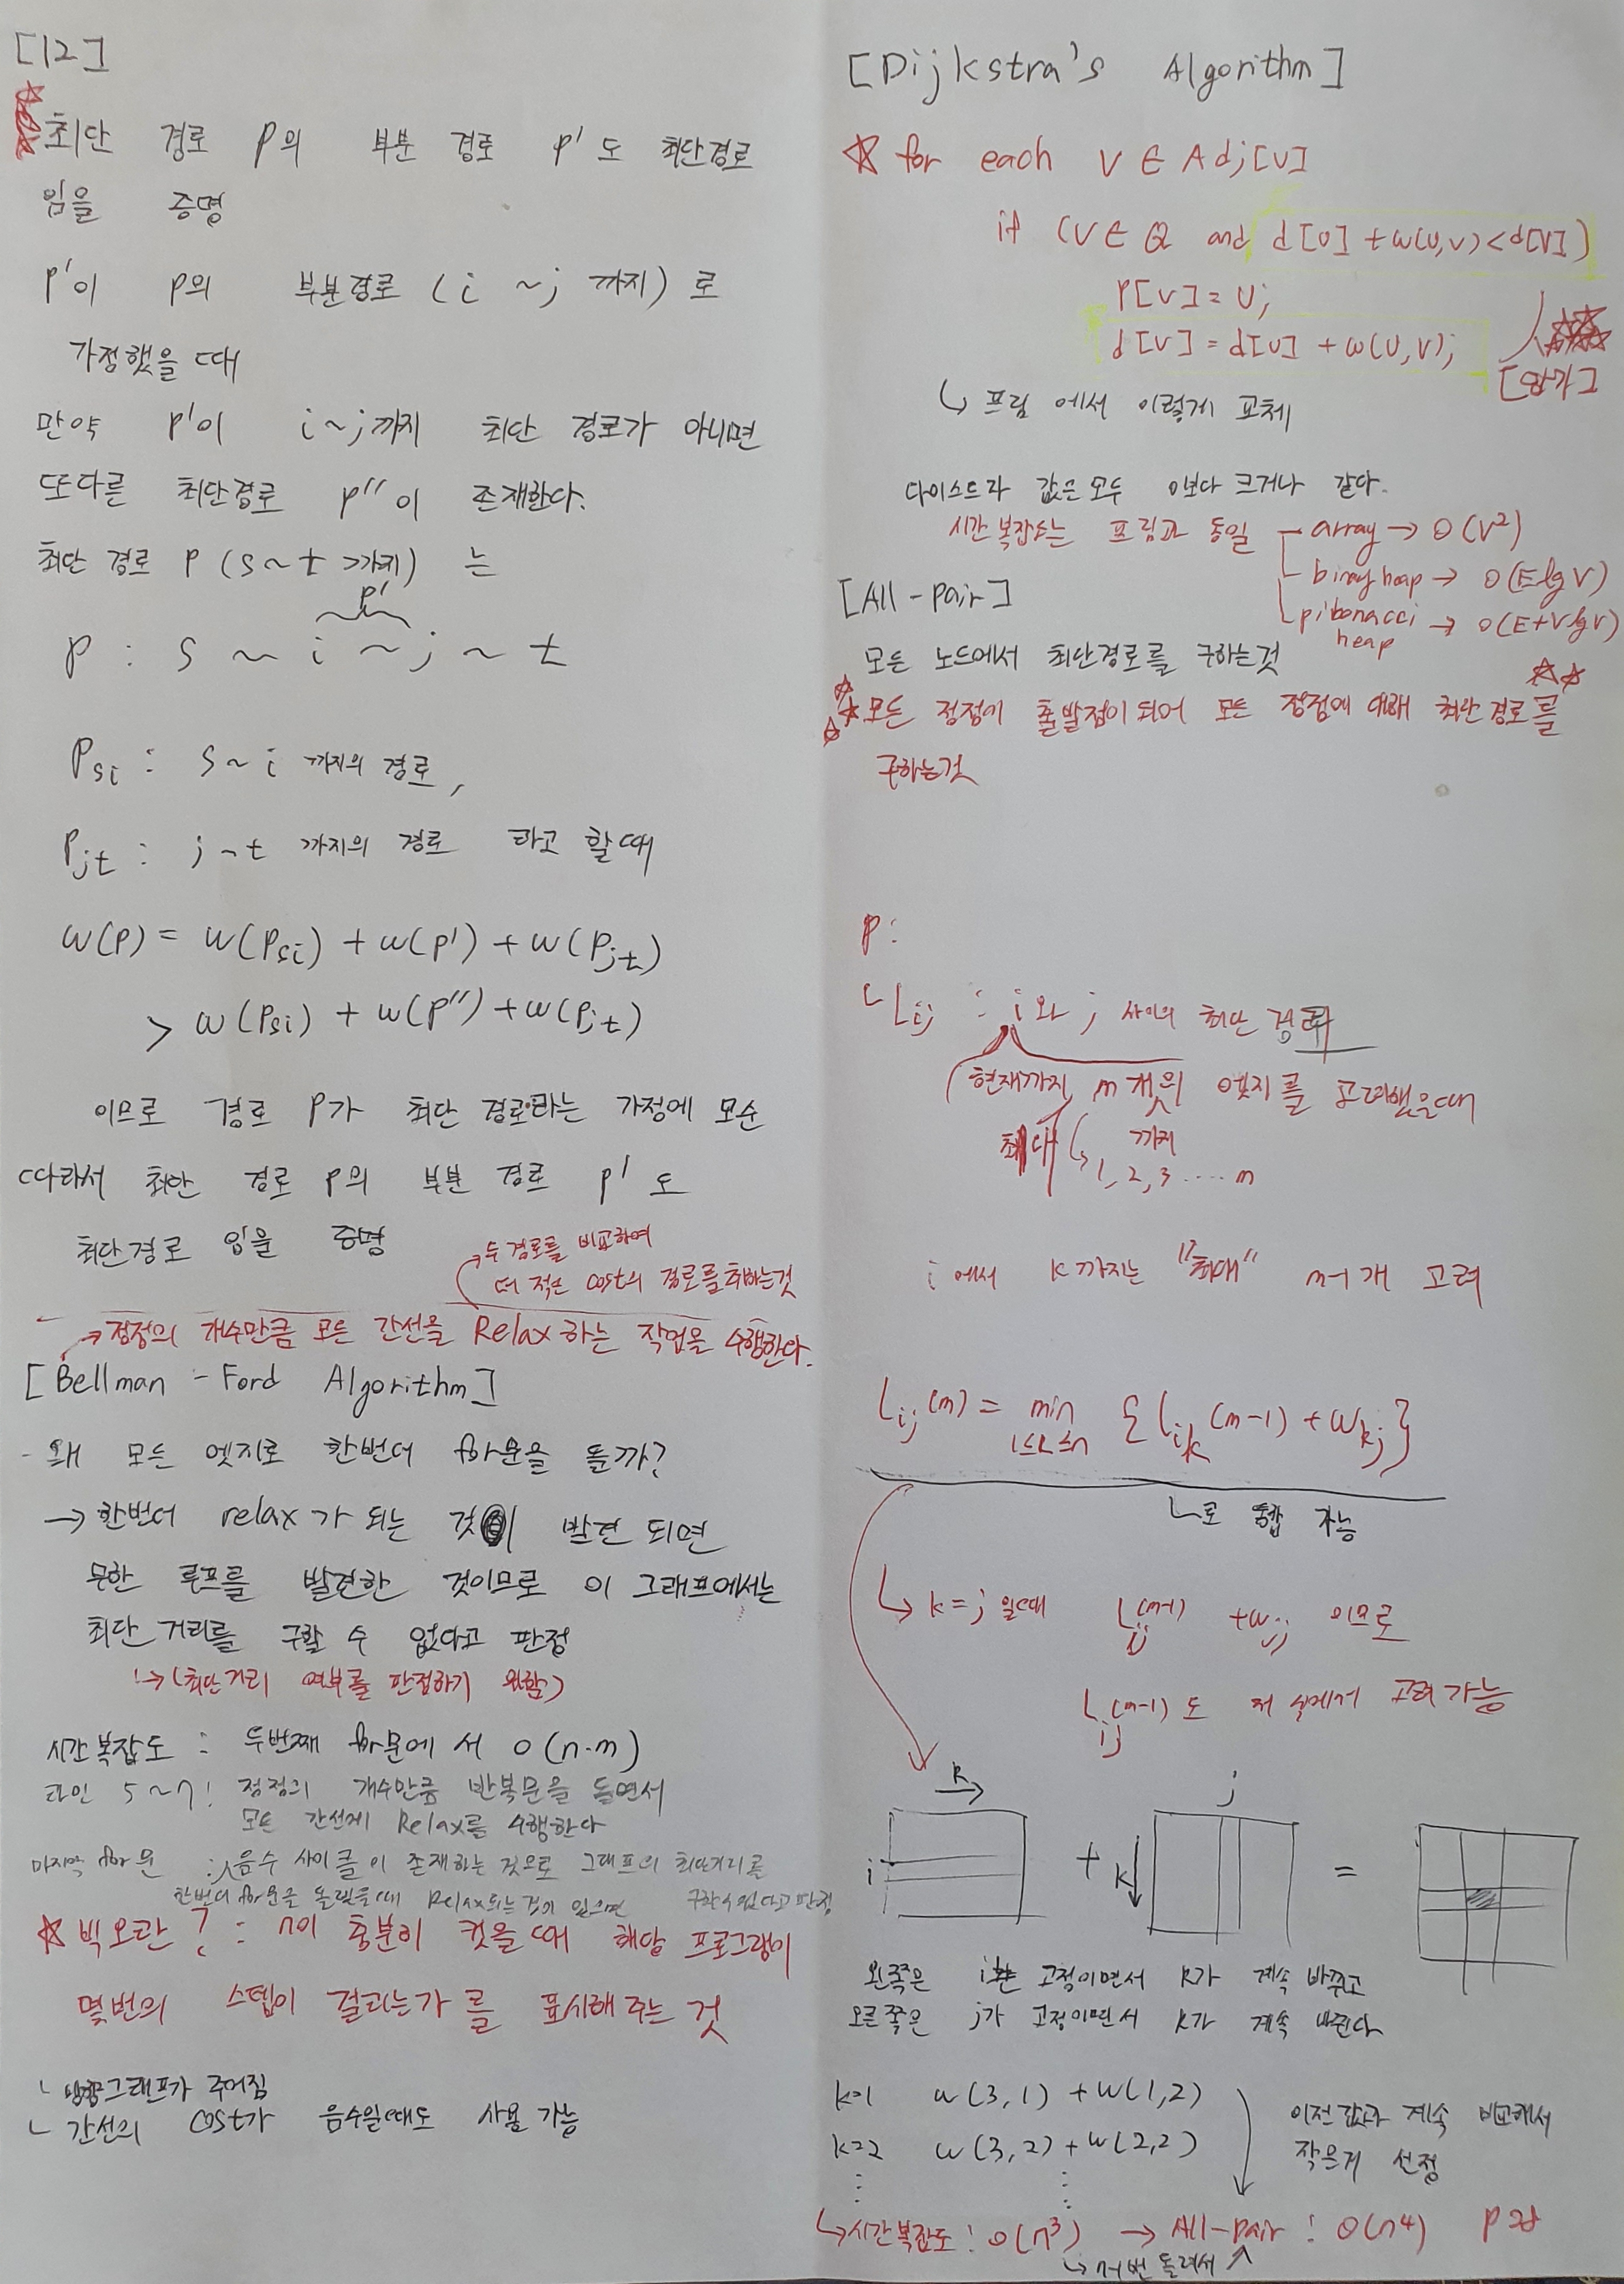 [12]
최단 경로 P의 부분 경로 P' 도 최단경로
임을 증명
P'이 P의 부분경로 (i ~ j 까지) 로
가정했을 때
만약 P'이 i~j까지 최단 경로가 아니면
또다른 최단경로 P''이 존재한다.
최단 경로 P (s~t 까지) 는
P'
P : s ~ i ~ j ~ t
Psi : s~i 까지의 경로,
Pjt : j~t 까지의 경로 라고 할때
w(P) = w(Psi) + w(P') + w(Pjt)
> w(Psi) + w(P'') + w(Pjt)
이므로 경로 P가 최단 경로라는 가정에 모순
따라서 최단 경로 P의 부분 경로 P' 도
최단경로 임을 증명
→ 두 경로를 비교하여
더 적은 cost의 경로를 취하는것
→ 정점의 개수만큼 모든 간선을 Relax 하는 작업을 수행한다.
[Bellman-Ford Algorithm]
- 왜 모든 엣지로 한번더 for문을 돌까?
→ 한번더 relax가 되는 것이 발견 되면
무한 루프를 발견한 것이므로 이 그래프에서는
최단 거리를 구할 수 없다고 판정
↳ (최단거리 여부를 판정하기 위함)
시간 복잡도 : 두번째 for문에서 O(n·m)
라인 5~7 : 정점의 개수만큼 반복문을 돌면서
모든 간선에 Relax를 수행한다
마지막 for문 : 음수 사이클이 존재하는 것으로 그래프의 최단거리를
한번더 for문을 돌렸을때 Relax되는것이 있으면 구할수없다고 판정
☆ 빅오란? : n이 충분히 컸을때 해당 프로그램이
몇번의 스텝이 걸리는가 를 표시해주는 것
↳ 방향그래프가 주어짐
↳ 간선의 cost가 음수일때도 사용 가능
[Dijkstra's Algorithm]
☆ for each V ∈ Adj[U]
if (V ∈ Q and d[U] + w(U,V) < d[V])
P[V] = U;
d[V] = d[U] + w(U,V);
[암기]
↳ 프림 에서 이렇게 교체
다익스트라 값은 모두 0보다 크거나 같다.
시간 복잡도는 프림과 동일 - array → O(V²)
- binary heap → O(E lg V)
[All-pair]
pibonacci heap → O(E+V lg V)
모든 노드에서 최단경로를 구하는것
☆ 모든 정점이 출발점이 되어 모든 정점에 대해 최단경로를
구하는것
P :
↳ Lij : i와 j 사이의 최단 경로
현재까지 m개의 엣지를 고려했을때
최대 까지
↳ 1, 2, 3 ..... m
i에서 k까지는 "최대" m-1개 고려
Lij(m) = min 1≤k≤n {Lik(m-1) + wkj}
↳로 통합 가능
↳ k=j 일때 Lij(m-1) + wjj 이므로
Lij(m-1)도 저 식에서 고려 가능
k→ j
i + k↓ =
왼쪽은 i는 고정이면서 k가 계속 바뀌고
오른쪽은 j가 고정이면서 k가 계속 바뀐다
k=1 w(3,1) + w(1,2)
k=2 w(3,2) + w(2,2)
이전값과 계속 비교해서
작은게 선정
↳ 시간복잡도 : O(n³) → All-pair : O(n⁴)
↳ n번 돌려서